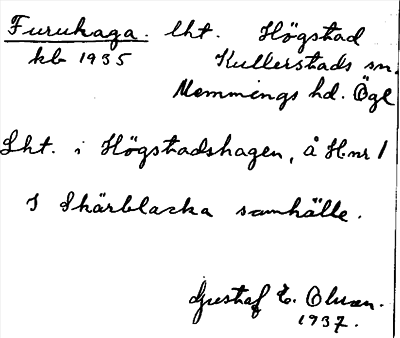 Furuhaga. lht. Högstad
kb 1935 Kullerstads sn.
Memmings hd. Ögl
Lht. i Högstadshagen, å H.nr 1
I Skärblacka samhälle.
Gustaf E. Olsson.
1937.